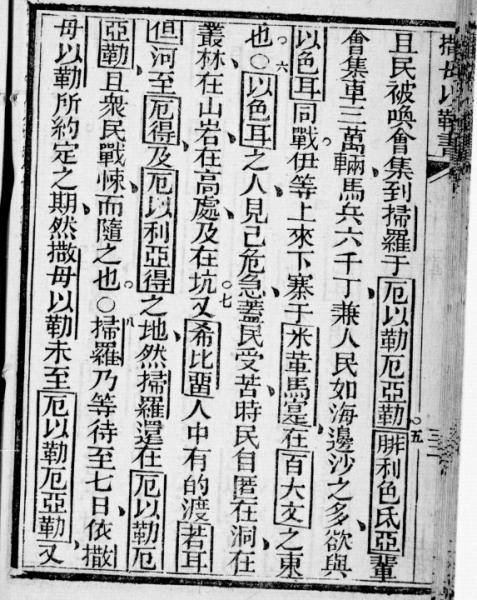 撒母以勒書
且民被喚會集到掃羅于厄以勒厄亞勒。五腓利色氐亞輩
會集車三萬輛、馬兵六千丁、兼人民如海邊沙之多、欲與
以色耳同戰。伊等上來下寨于米革馬寔、在百大文之東
也。六○以色耳之人見己危急、蓋民受苦時、民自匿在洞、在
叢林、在山岩、在高處、及在坑。七又希比畱人中有的渡若耳
但河至厄得、及厄以利亞得之地、然掃羅還在厄以勒厄
亞勒、且衆民戰悚而隨之也。八○掃羅乃等待至七日、依撒
母以勒所約定之期、然撒母以勒未至厄以勒厄亞勒、又